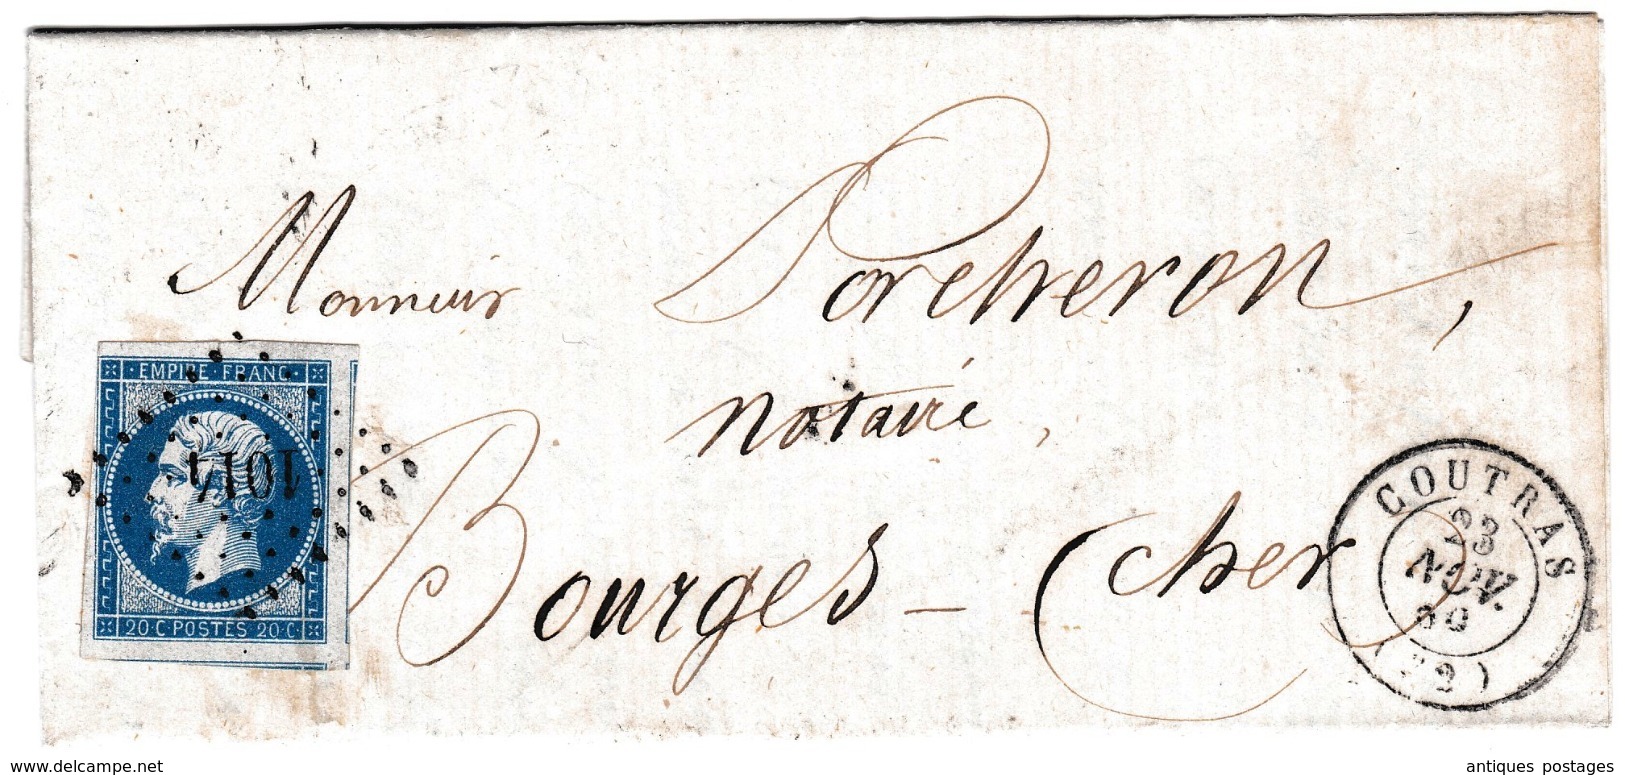 Monsieur Porcheron,
notaire,
Bourges - (Cher)
EMPIRE FRANC.
1014
20·C·POSTES 20·C·
COUTRAS
23
NOV.
(32)
www.delcampe.net
antiques postages